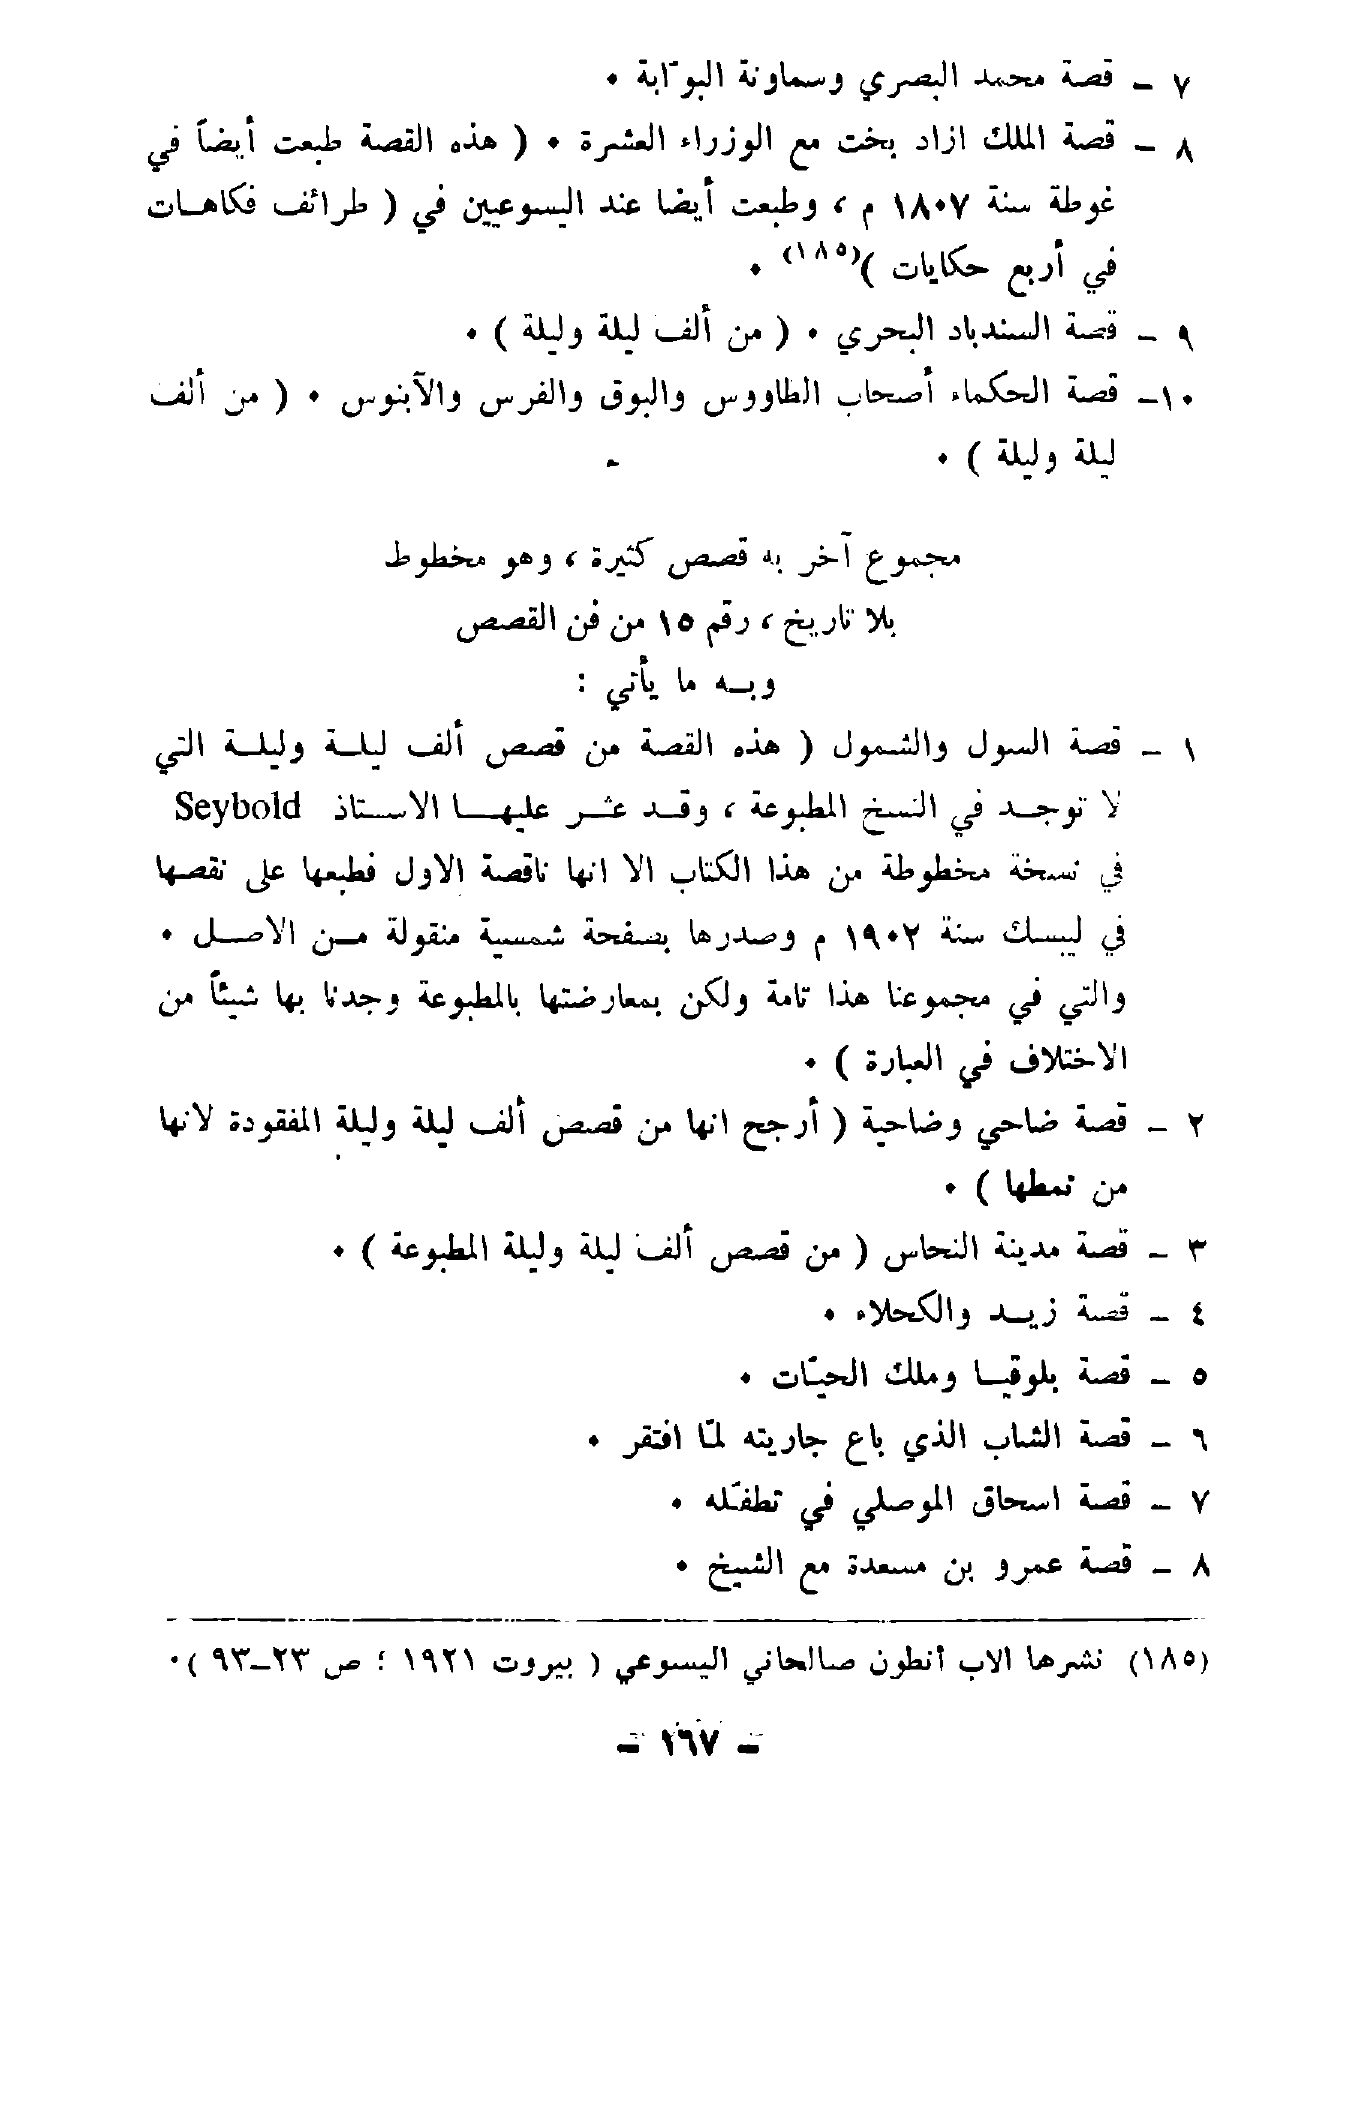 ٧ ــ قصة محمد البصري وسماونة البوّابة ٠
٨ ــ قصة الملك ازاد بخت مع الوزراء العشرة ٠ ( هذه القصة طبعت أيضاً في
غوطة سنة ١٨٠٧ م ، وطبعت أيضا عند اليسوعيين في ( طرائف فكاهات
في أربع حكايات )(١٨٥) ٠
٩ ــ قصة السندباد البحري ٠ ( من ألف ليلة وليلة ) ٠
١٠ــ قصة الحكماء أصحاب الطاووس والبوق والفرس والآبنوس ٠ ( من ألف
ليلة وليلة ) ٠
مجموع آخر به قصص كثيرة ، وهو مخطوط
بلا تاريخ ، رقم ١٥ من فن القصص
وبه ما يأتي :
١ ــ قصة السول والشمول ( هذه القصة من قصص ألف ليلة وليلة التي
لا توجد في النسخ المطبوعة ، وقد عثر عليها الاستاذ Seybold
في نسخة مخطوطة من هذا الكتاب الا انها ناقصة الاول فطبعها على نقصها
في ليبسك سنة ١٩٠٢ م وصدرها بصفحة شمسية منقولة من الاصل ٠
والتي في مجموعنا هذا تامة ولكن بمعارضتها بالمطبوعة وجدنا بها شيئاً من
الاختلاف في العبارة ) ٠
٢ ــ قصة ضاحي وضاحية ( أرجح انها من قصص ألف ليلة وليلة المفقودة لانها
من نمطها ) ٠
٣ ــ قصة مدينة النحاس ( من قصص ألف ليلة وليلة المطبوعة ) ٠
٤ ــ قصة زيد والكحلاء ٠
٥ ــ قصة بلوقيا وملك الحيّات ٠
٦ ــ قصة الشاب الذي باع جاريته لمّا افتقر ٠
٧ ــ قصة اسحاق الموصلي في تطفّله ٠
٨ ــ قصة عمرو بن مسعدة مع الشيخ ٠
(١٨٥) نشرها الاب أنطون صالحاني اليسوعي ( بيروت ١٩٢١ ؛ ص ٢٣ــ٩٣ )٠
ــ ١٦٧ ــ